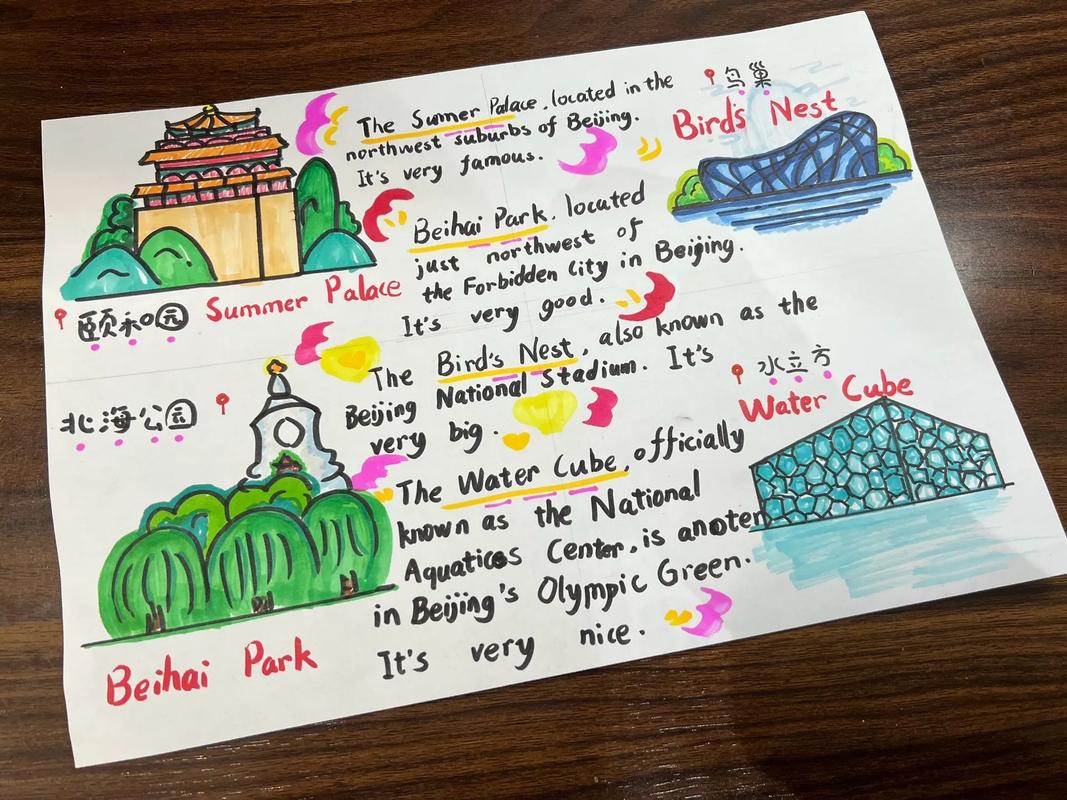 The Sumer Palace, located in the
northwest suburbs of Beijing.
It's very famous.
鸟巢
Bird's Nest
颐和园
Summer Palace
Beihai Park, located
just northwest of
the Forbidden City in Beijing.
It's very good.
北海公园
Beihai Park
The Bird's Nest, also known as the
Beijing National Stadium. It's
very big.
水立方
Water Cube
The Water Cube, officially
known as the National
Aquaticos Center, is anoter
in Beijing's Olympic Green.
It's very nice.